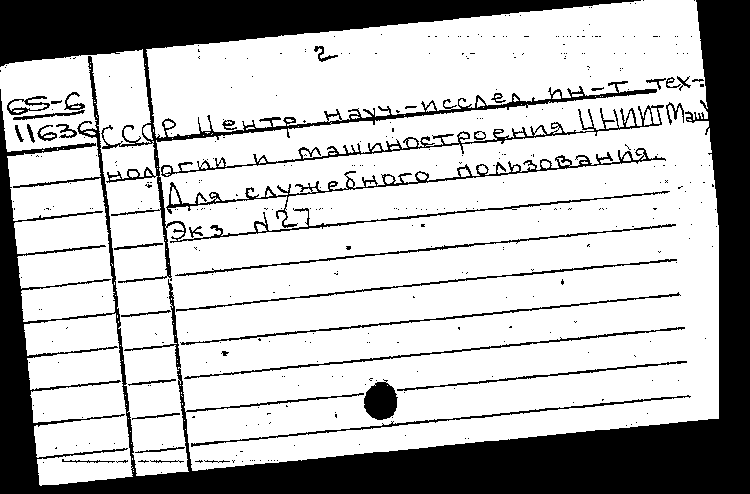 2
65-6
11636
СССР Центр. науч.-исслед. ин-т тех-
нологии и машиностроения ЦНИИТМаш)
Для служебного пользования.
Экз. №27.